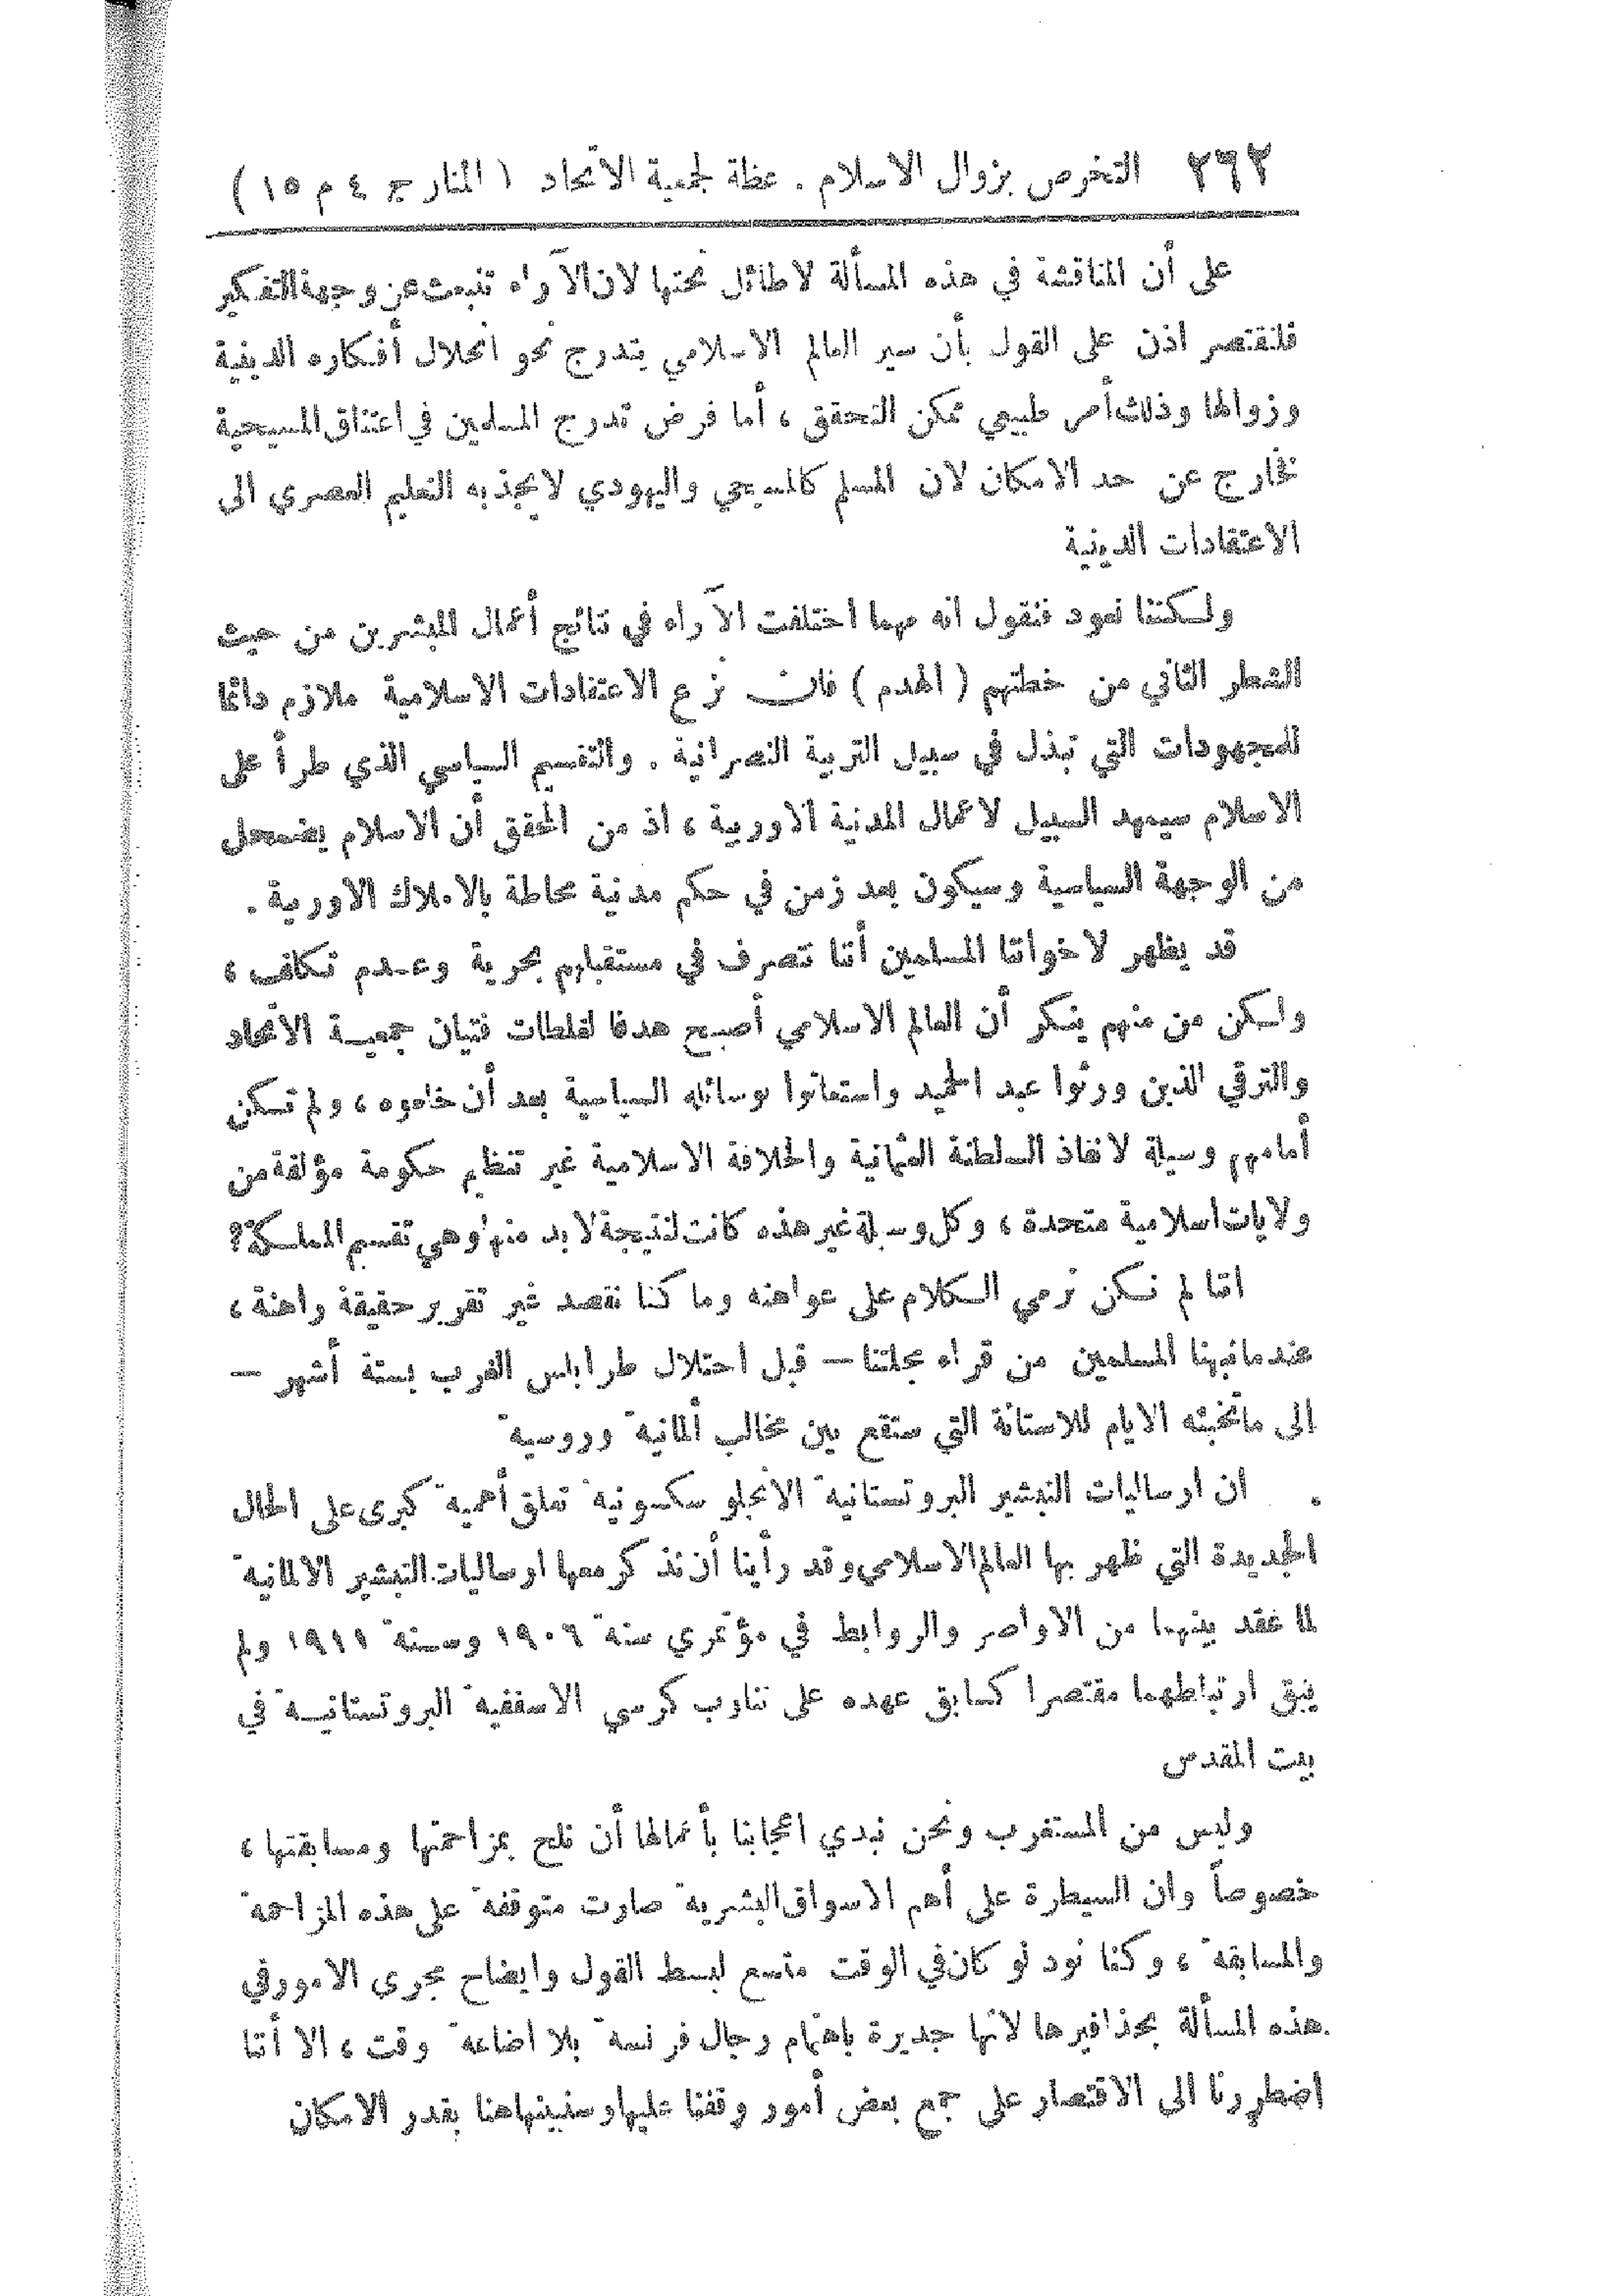 ٢٦٢ التخرص بزوال الاسلام . عظة لجمعية الاتحاد ( المنار ج ٤ م ١٥ )
على أن المناقشة في هذه المسألة لا طائل تحتها لان الآراء تنبعث عن وجهة التفكير
فلنقتصر اذن على القول بأن سير العالم الاسلامي يتدرج نحو انحلال أفكاره الدينية
وزوالها وذلك أمر طبيعي ممكن التحقق ، أما فرض تدرج المسلمين في اعتناق المسيحية
فخارج عن حد الامكان لان المسلم كالمسيحي واليهودي لا يجذبه التعليم العصري الى
الاعتقادات الدينية
ولكننا نعود فنقول انه مهما اختلفت الآراء في نتائج أعمال المبشرين من حيث
الشطر الثاني من خطتهم ( الهدم ) فان نزع الاعتقادات الاسلامية ملازم دائما
للمجهودات التي تبذل في سبيل التربية النصرانية . والتقسيم السياسي الذي طرأ على
الاسلام سيمهد السبيل لاعمال المدنية الاوربية ، اذ من المحقق أن الاسلام يضمحل
من الوجهة السياسية وسيكون بعد زمن في حكم مدنية محاطة بالاسلاك الاوربية .
قد يظهر لاخواننا المسلمين أننا نتصرف في مستقبلهم بحرية وعدم تكلف ،
ولكن من منهم ينكر أن العالم الاسلامي أصبح هدفا لغلطات فتيان جمعية الاتحاد
والترقي الذين ورثوا عبد الحميد واستعانوا بوسائله السياسية بعد أن خلعوه ، ولم تكن
أمامهم وسيلة لانقاذ السلطنة العثمانية والخلافة الاسلامية غير تنظيم حكومة مؤلفة من
ولايات اسلامية متحدة ، وكل وسيلة غير هذه كانت لنتيجة لا بد منها وهي تقسم المملكة؟
اننا لم نكن نرمي الكلام على عواهنه وما كنا نقصد غير تقرير حقيقة راهنة ،
عندما نبهنا المسلمين من قراء مجلتنا — قبل احتلال طرابلس الغرب بستة أشهر —
إلى ما تخبئه الايام للاستانة التي ستقع بين مخالب ألمانية وروسية
ان ارساليات التبشير البروتستانية الانجلو سكسونية تعلق أهمية كبرى على الحال
الجديدة التي ظهر بها العالم الاسلامي وقد رأينا أن نذكر معها ارساليات التبشير الالمانية
لما عقد بينهما من الاواصر والروابط في مؤتمري سنة ١٩٠٦ وسنة ١٩١١ ولم
يبق ارتباطهما مقتصرا كسابق عهده على تناوب كرسي الاسقفية البروتستانية في
بيت المقدس
وليس من المستغرب ونحن نبدي اعجابنا بأعمالها أن نلح بمزاحمتها ومسابقتها ،
خصوصاً وان السيطرة على أهم الاسواق البشرية صارت متوقفة على هذه المزاحمة
والمسابقة ، وكنا نود لو كان في الوقت متسع لبسط القول وايضاح مجرى الامور في
هذه المسألة بحذافيرها لانها جديرة باهتمام رجال فرنسة بلا اضاعة وقت ، الا أننا
اضطررنا الى الاقتصار على جمع بعض أمور وقفنا عليها وسنبينها هنا بقدر الامكان